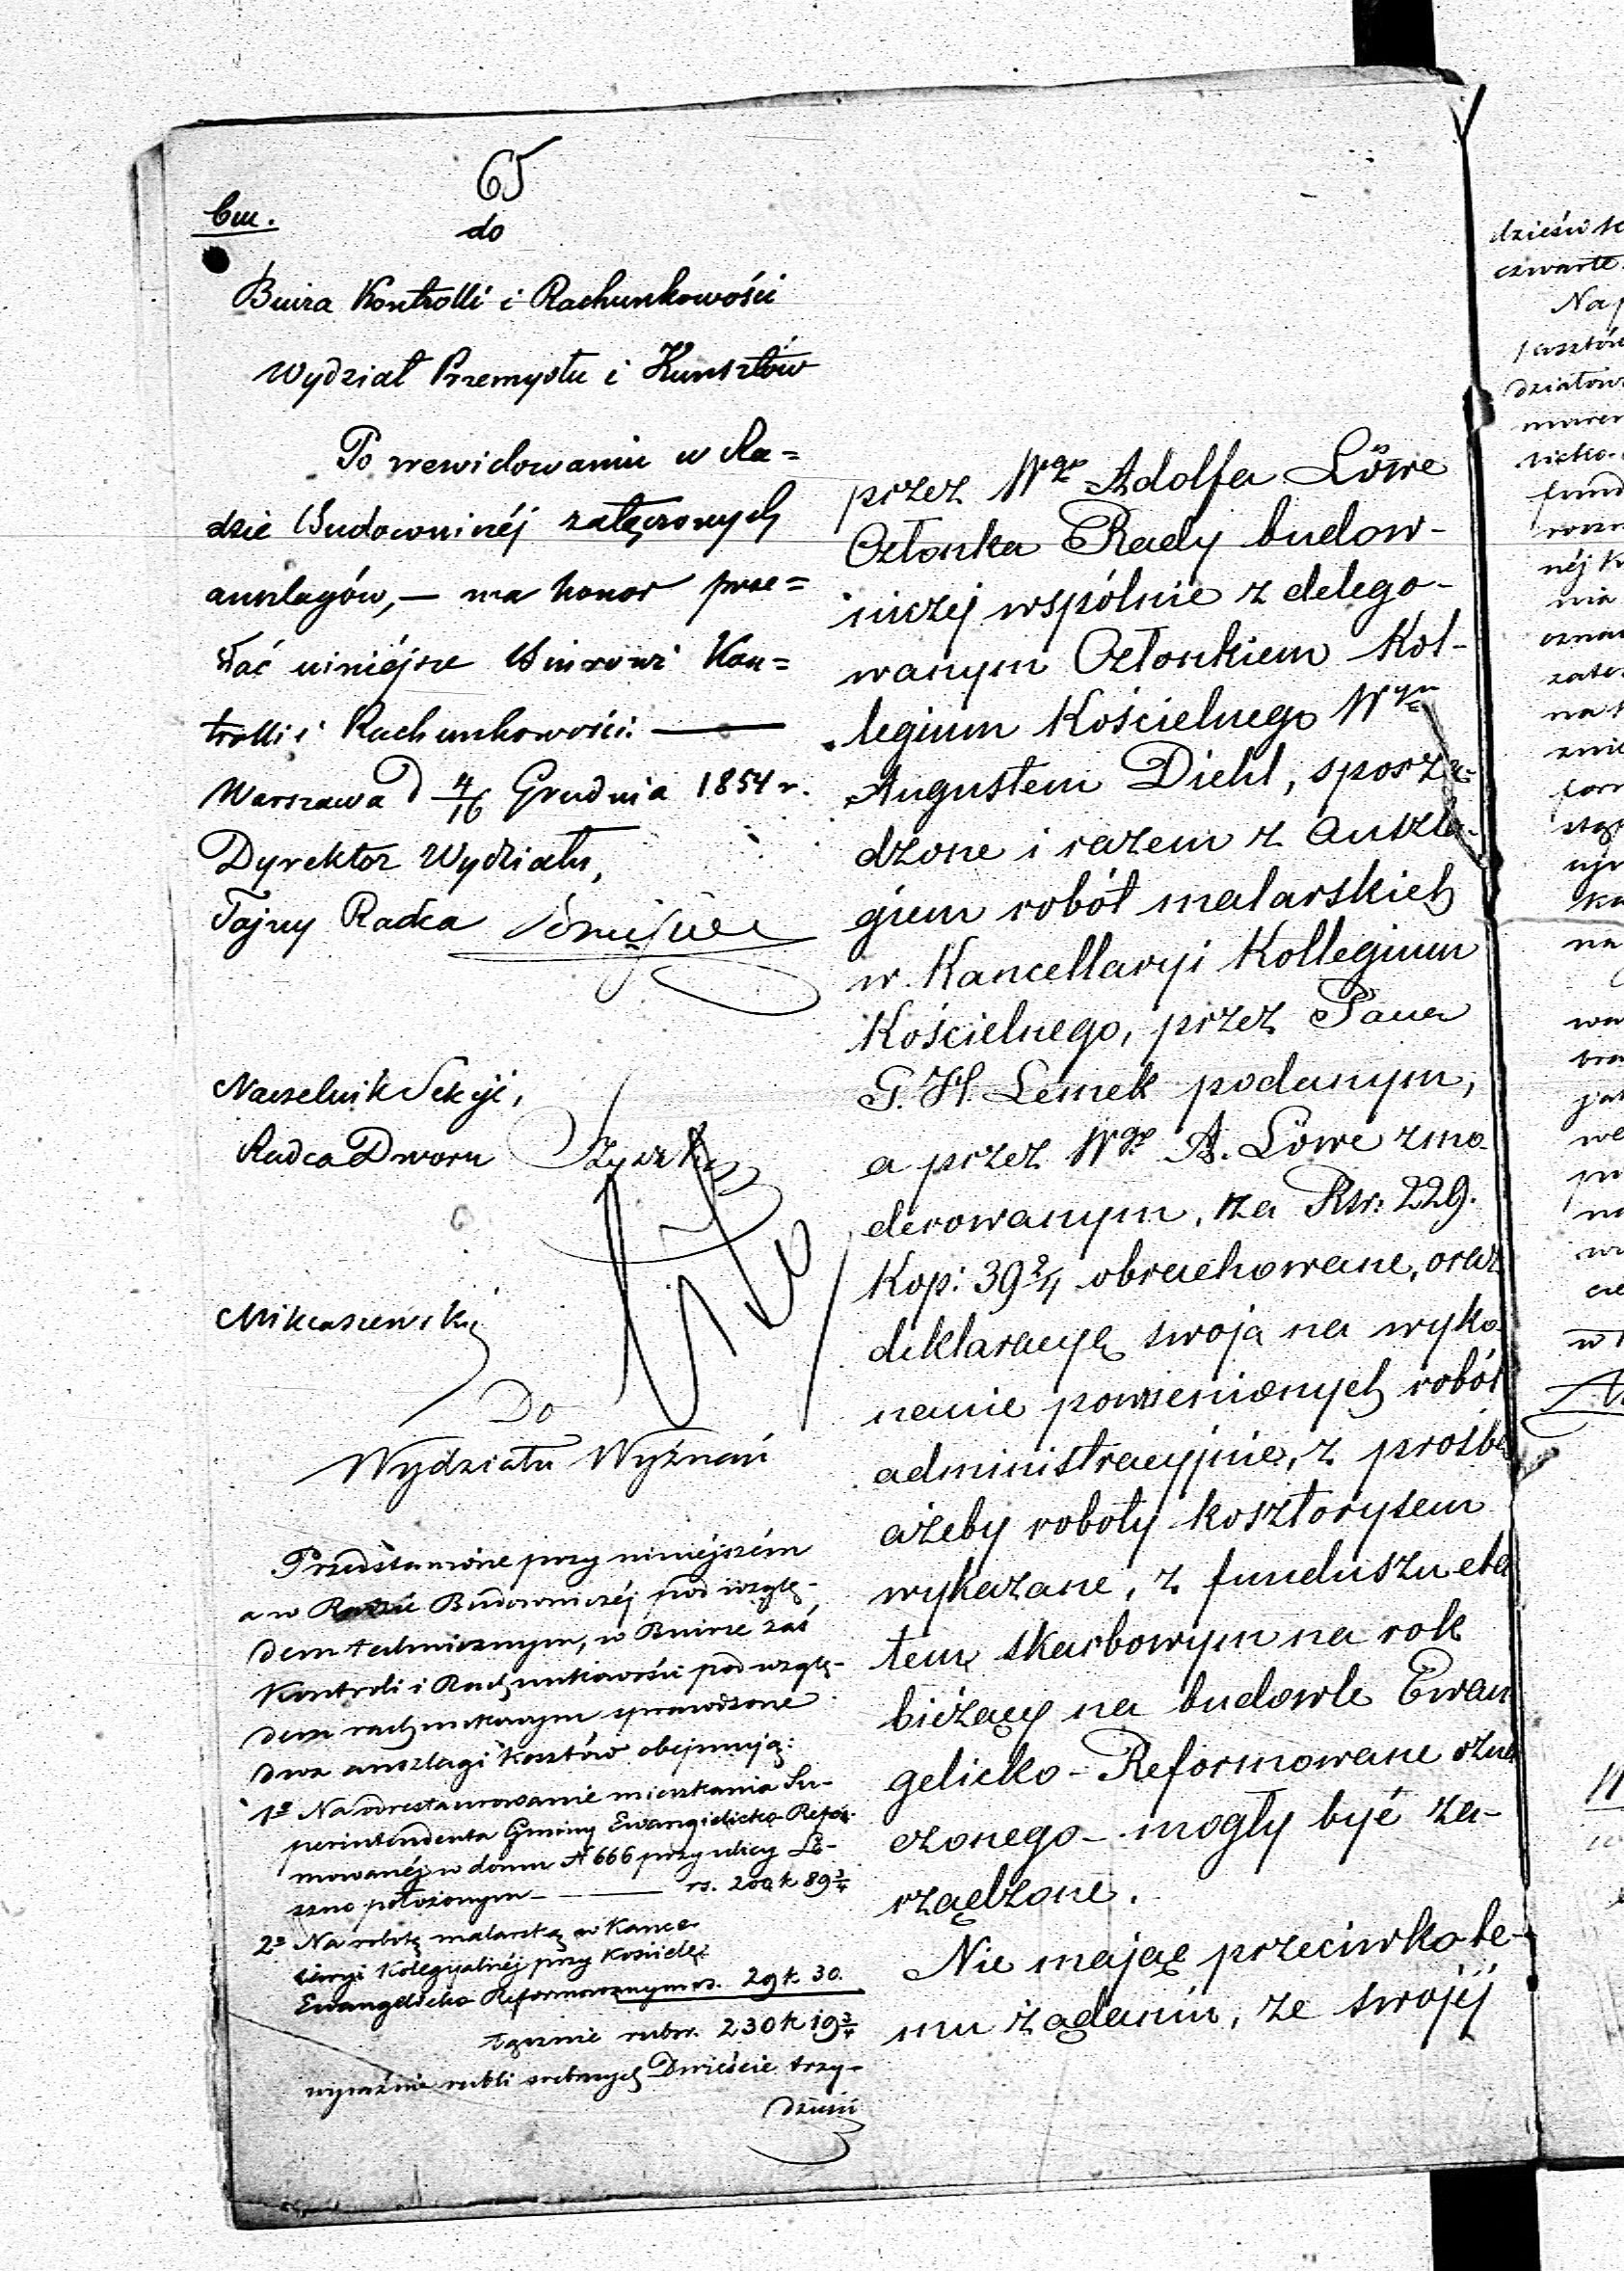 65
do
Biura Kontrolli i Rachunkowości
Wydział Przemysłu i Kunsztów
Po zrewidowaniu w Ra=
dzie Budowniczéj załączonych
anszlagów, — ma honor prze=
słać niniéjsze Biurowi Kon=
trolli i Rachunkowości. —
Warszawa d 4/16 Grudnia 1854 r.
Dyrektor Wydziału,
Tajny Radca
Naczelnik Sekcji,
Radca Dworu
Mikaszewski
Do
Wydziału Wyznań
Przedstawione przy niniejszém
a w Radzie Budowniczéj pod wzglę-
dem technicznym, w Biurze zaś
Kontroli i Rachunkowości pod wzglę-
dem rachunkowym sprawdzone
dwa anszlagi kosztów obejmują:
1º Na odrestaurowanie mieszkania Su-
perintendenta Gminy Ewangielicko-Refor-
mowanéj w domu № 666 przy ulicy Le-
szno położonym — rs. 200 k 89 3/4
2º Na robotę malarską w Kance-
laryi Kolegijalnéj przy Kościele
Ewangelicko Reformowanym rs. 29 k 30.
łącznie rubsr. 230 k 19 3/4
wyraźnie rubli srebrnych Dwieście trzy-
dzieści
przez Wgo Adolfa Löwe
Członka Rady budow-
niczej wspólnie z delego-
wanym Członkiem Kol-
legium Kościelnego Wym
Augustem Diehl, sporzą-
dzone i razem z anszla-
giem robót malarskich
w Kancellaryi Kollegium
Kościelnego, przez Pana
G. H. Lemek podanym,
a przez Wgo A. Löwe zmo-
derowanym, na Rsr: 229.
Kop: 39 2/4 obrachowane, oraz
deklaracyę swoją na wyko-
nanie powienionych robót
administracyjnie, z prośbą
ażeby roboty kosztorysem
wykazane, z funduszu eta
tem skarbowym na rok
bieżący na budowle Ewan
gelicko-Reformowane ozna
czonego - mogły być za-
rządzone.
Nie mając przeciwko te-
mu żądaniu, ze swojéj